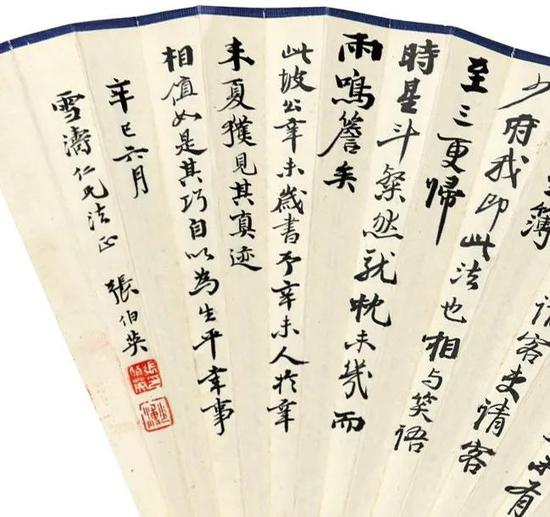 未有
主簿請客吏請客
少府我即此法也相与笑語
至三更歸
時星斗粲然就枕未幾而
雨鳴簷矣
此坡公辛未歲書予辛未人於辛
未夏獲見其真迹
相值如是其巧自以為生平幸事
辛巳六月
雪濤仁兄法正 張伯英